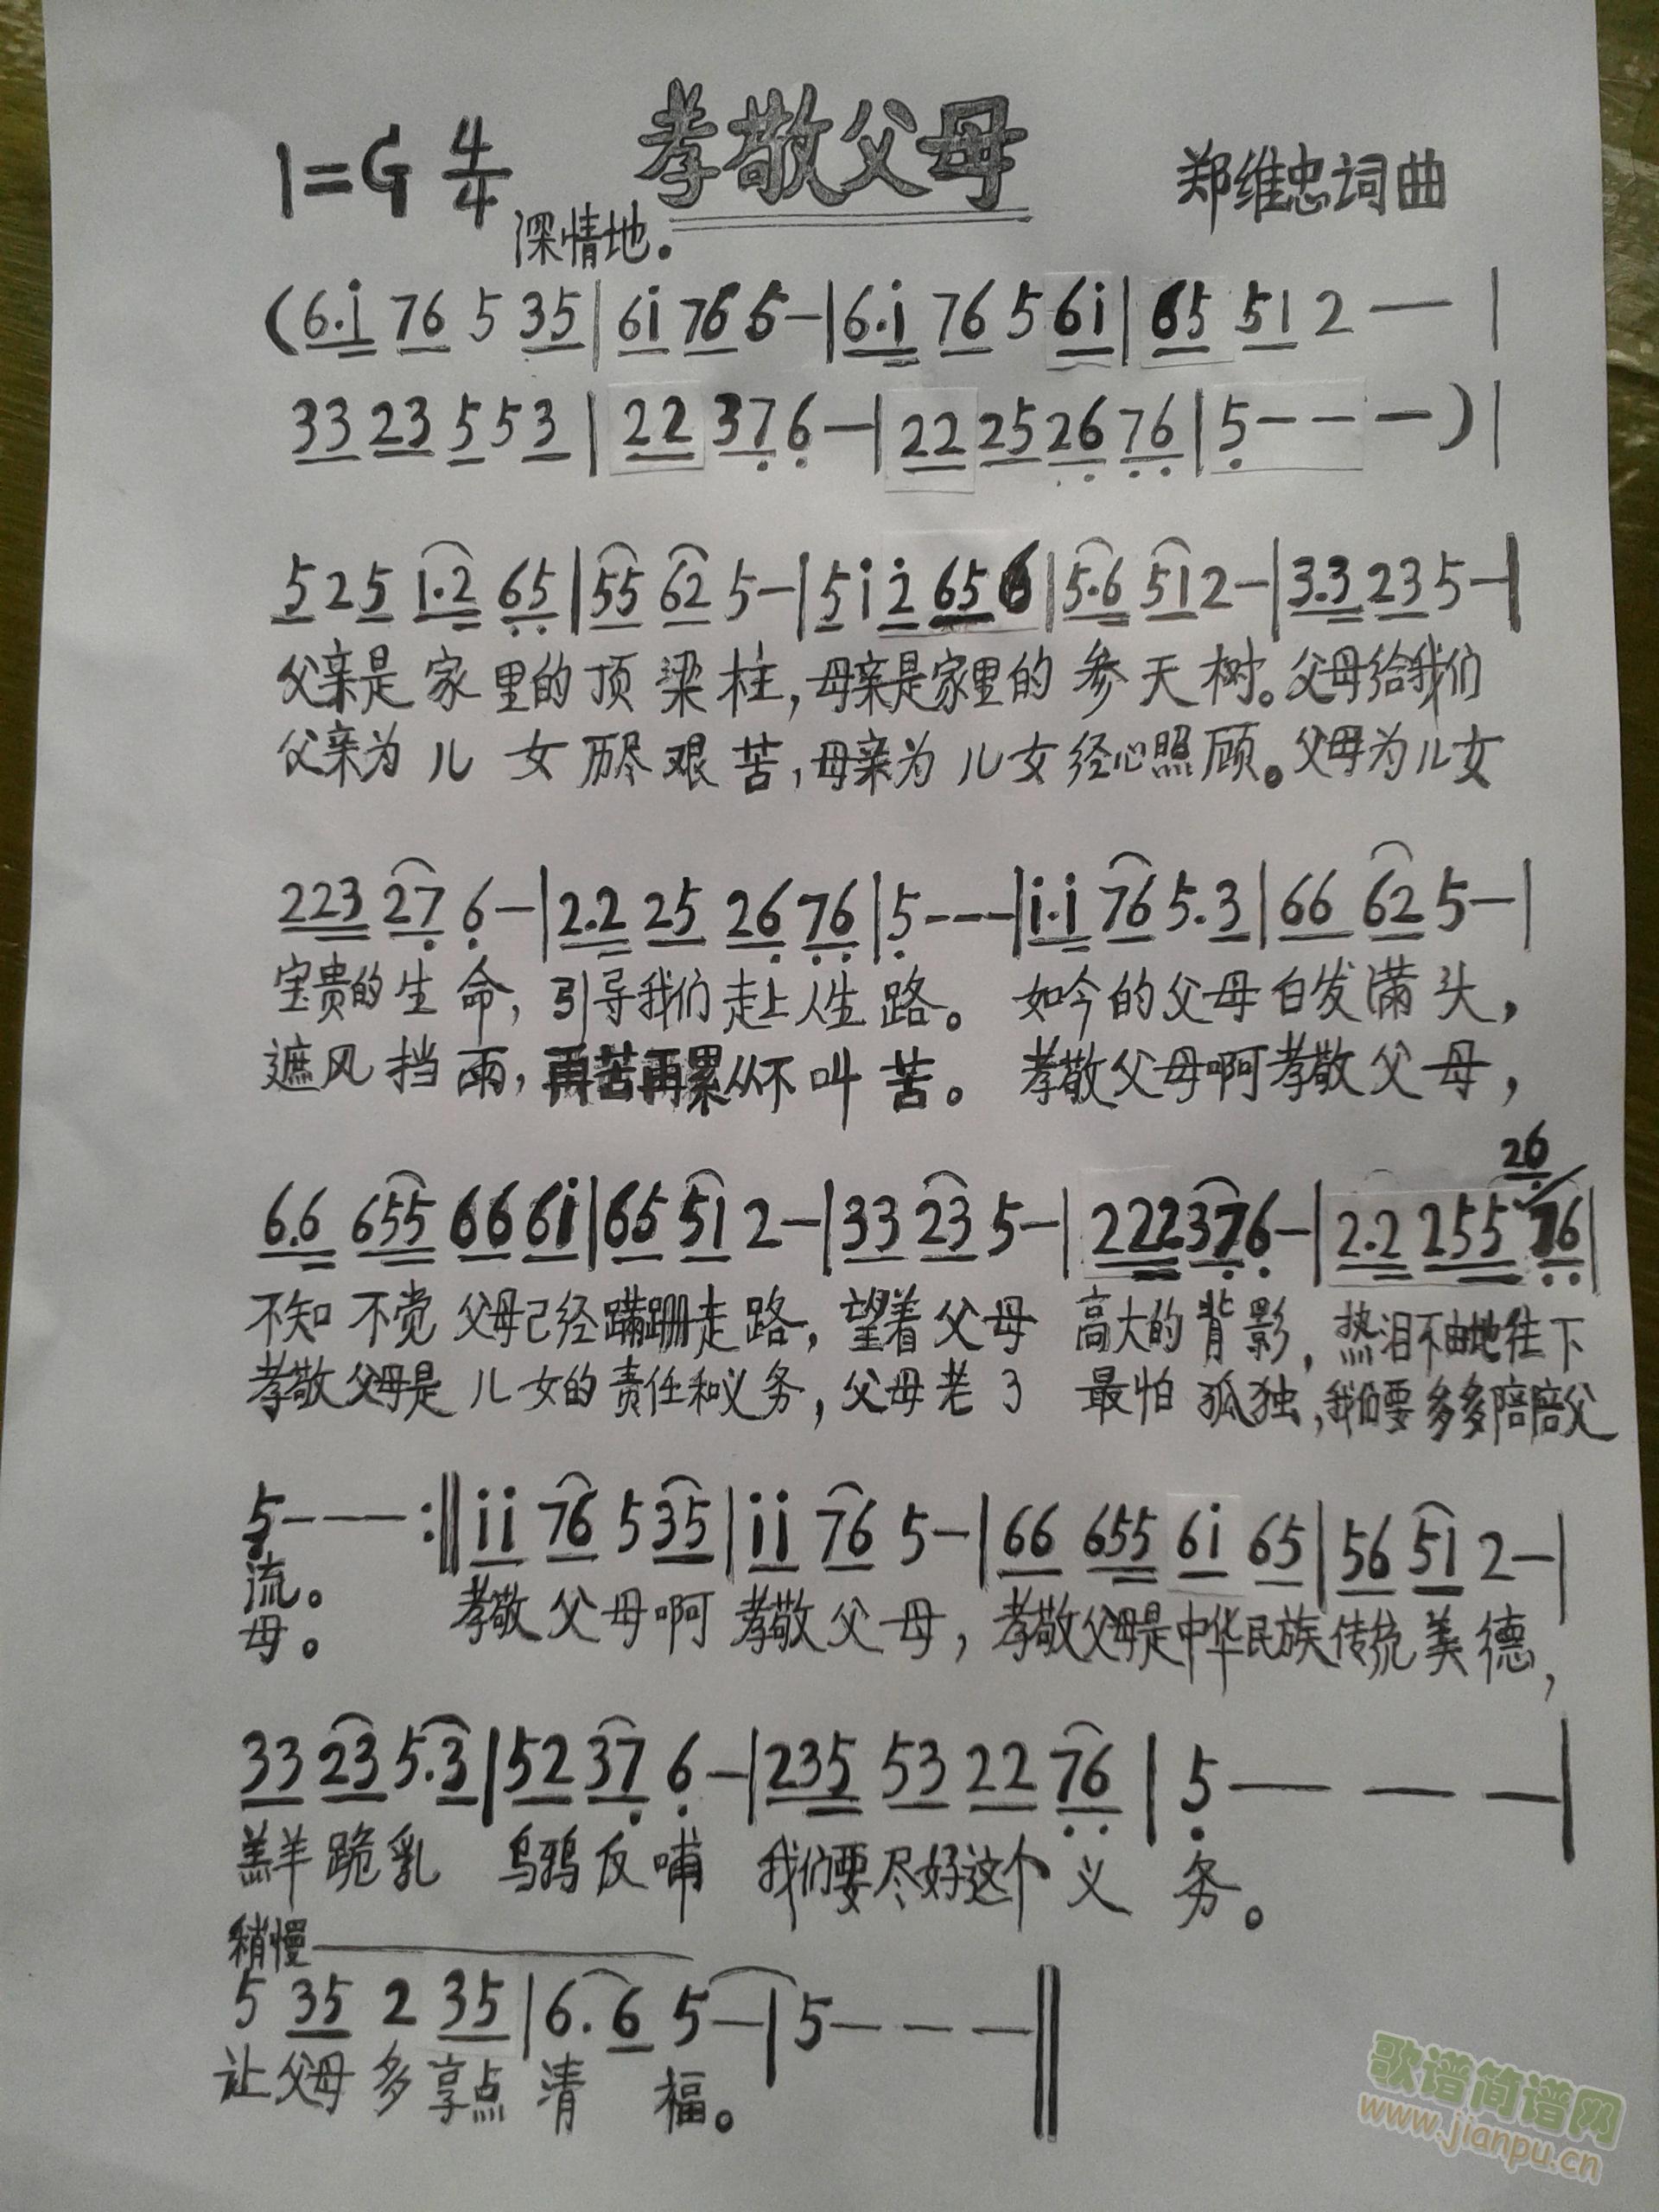 孝敬父母
1=G 4/4
郑维忠词曲
深情地。
(6.i 76 5 35|6i 76 5—|6.i 76 5 6i|65 51 2 — |
33 23 5 5 3 | 22 37 6 —|22 25 26 76|5 — — —)|
5 2 5 1.2 65|55 62 5—|5 i 2 65 6|5.6 51 2—|3.3 23 5—|
父亲是家里的顶梁柱,母亲是家里的参天树。父母给我们
父亲为儿女历尽艰苦,母亲为儿女经心照顾。父母为儿女
223 27 6—|2.2 25 26 76|5 - - -|i.i 76 5.3|66 62 5—|
宝贵的生命,引导我们走上人生路。如今的父母白发满头,
遮风挡雨,再苦再累从不叫苦。孝敬父母啊孝敬父母,
26
6.6 655 66 6i|65 51 2—|33 23 5—|222 37 6—|2.2 255 76|
不知不觉父母已经蹒跚走路,望着父母高大的背影,热泪不由地往下
孝敬父母是儿女的责任和义务,父母老了最怕孤独,我们要多多陪陪父
5 - — — :‖ii 76 5 35|ii 76 5—|66 655 6i 65|56 51 2—|
流。孝敬父母啊孝敬父母,孝敬父母是中华民族传统美德,
母。
33 23 5.3|52 37 6—|235 53 22 76|5 — — —|
羔羊跪乳 乌鸦反哺 我们要尽好这个义务。
稍慢
5 35 2 35|6.6 5—|5 — — —‖
让父母多享点清福。
歌谱简谱网
www.jianpu.cn